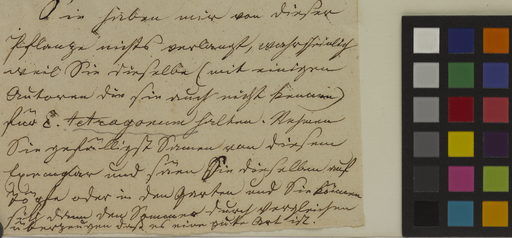 Sie haben mir von dieser
Pflanze nichts verlangt, wahrscheinlich
weil Sie dieselbe (mit einigen
Autoren die sie auch nicht kennen)
für E. tetragonum halten. Nehmen
Sie gefälligst Samen von diesem
Exemplar und säen Sie dieselben auf
Töpfe oder in den Garten und Sie können
sich dann den Sommer durch vergleichen
überzeugen dass es eine gute Art ist.